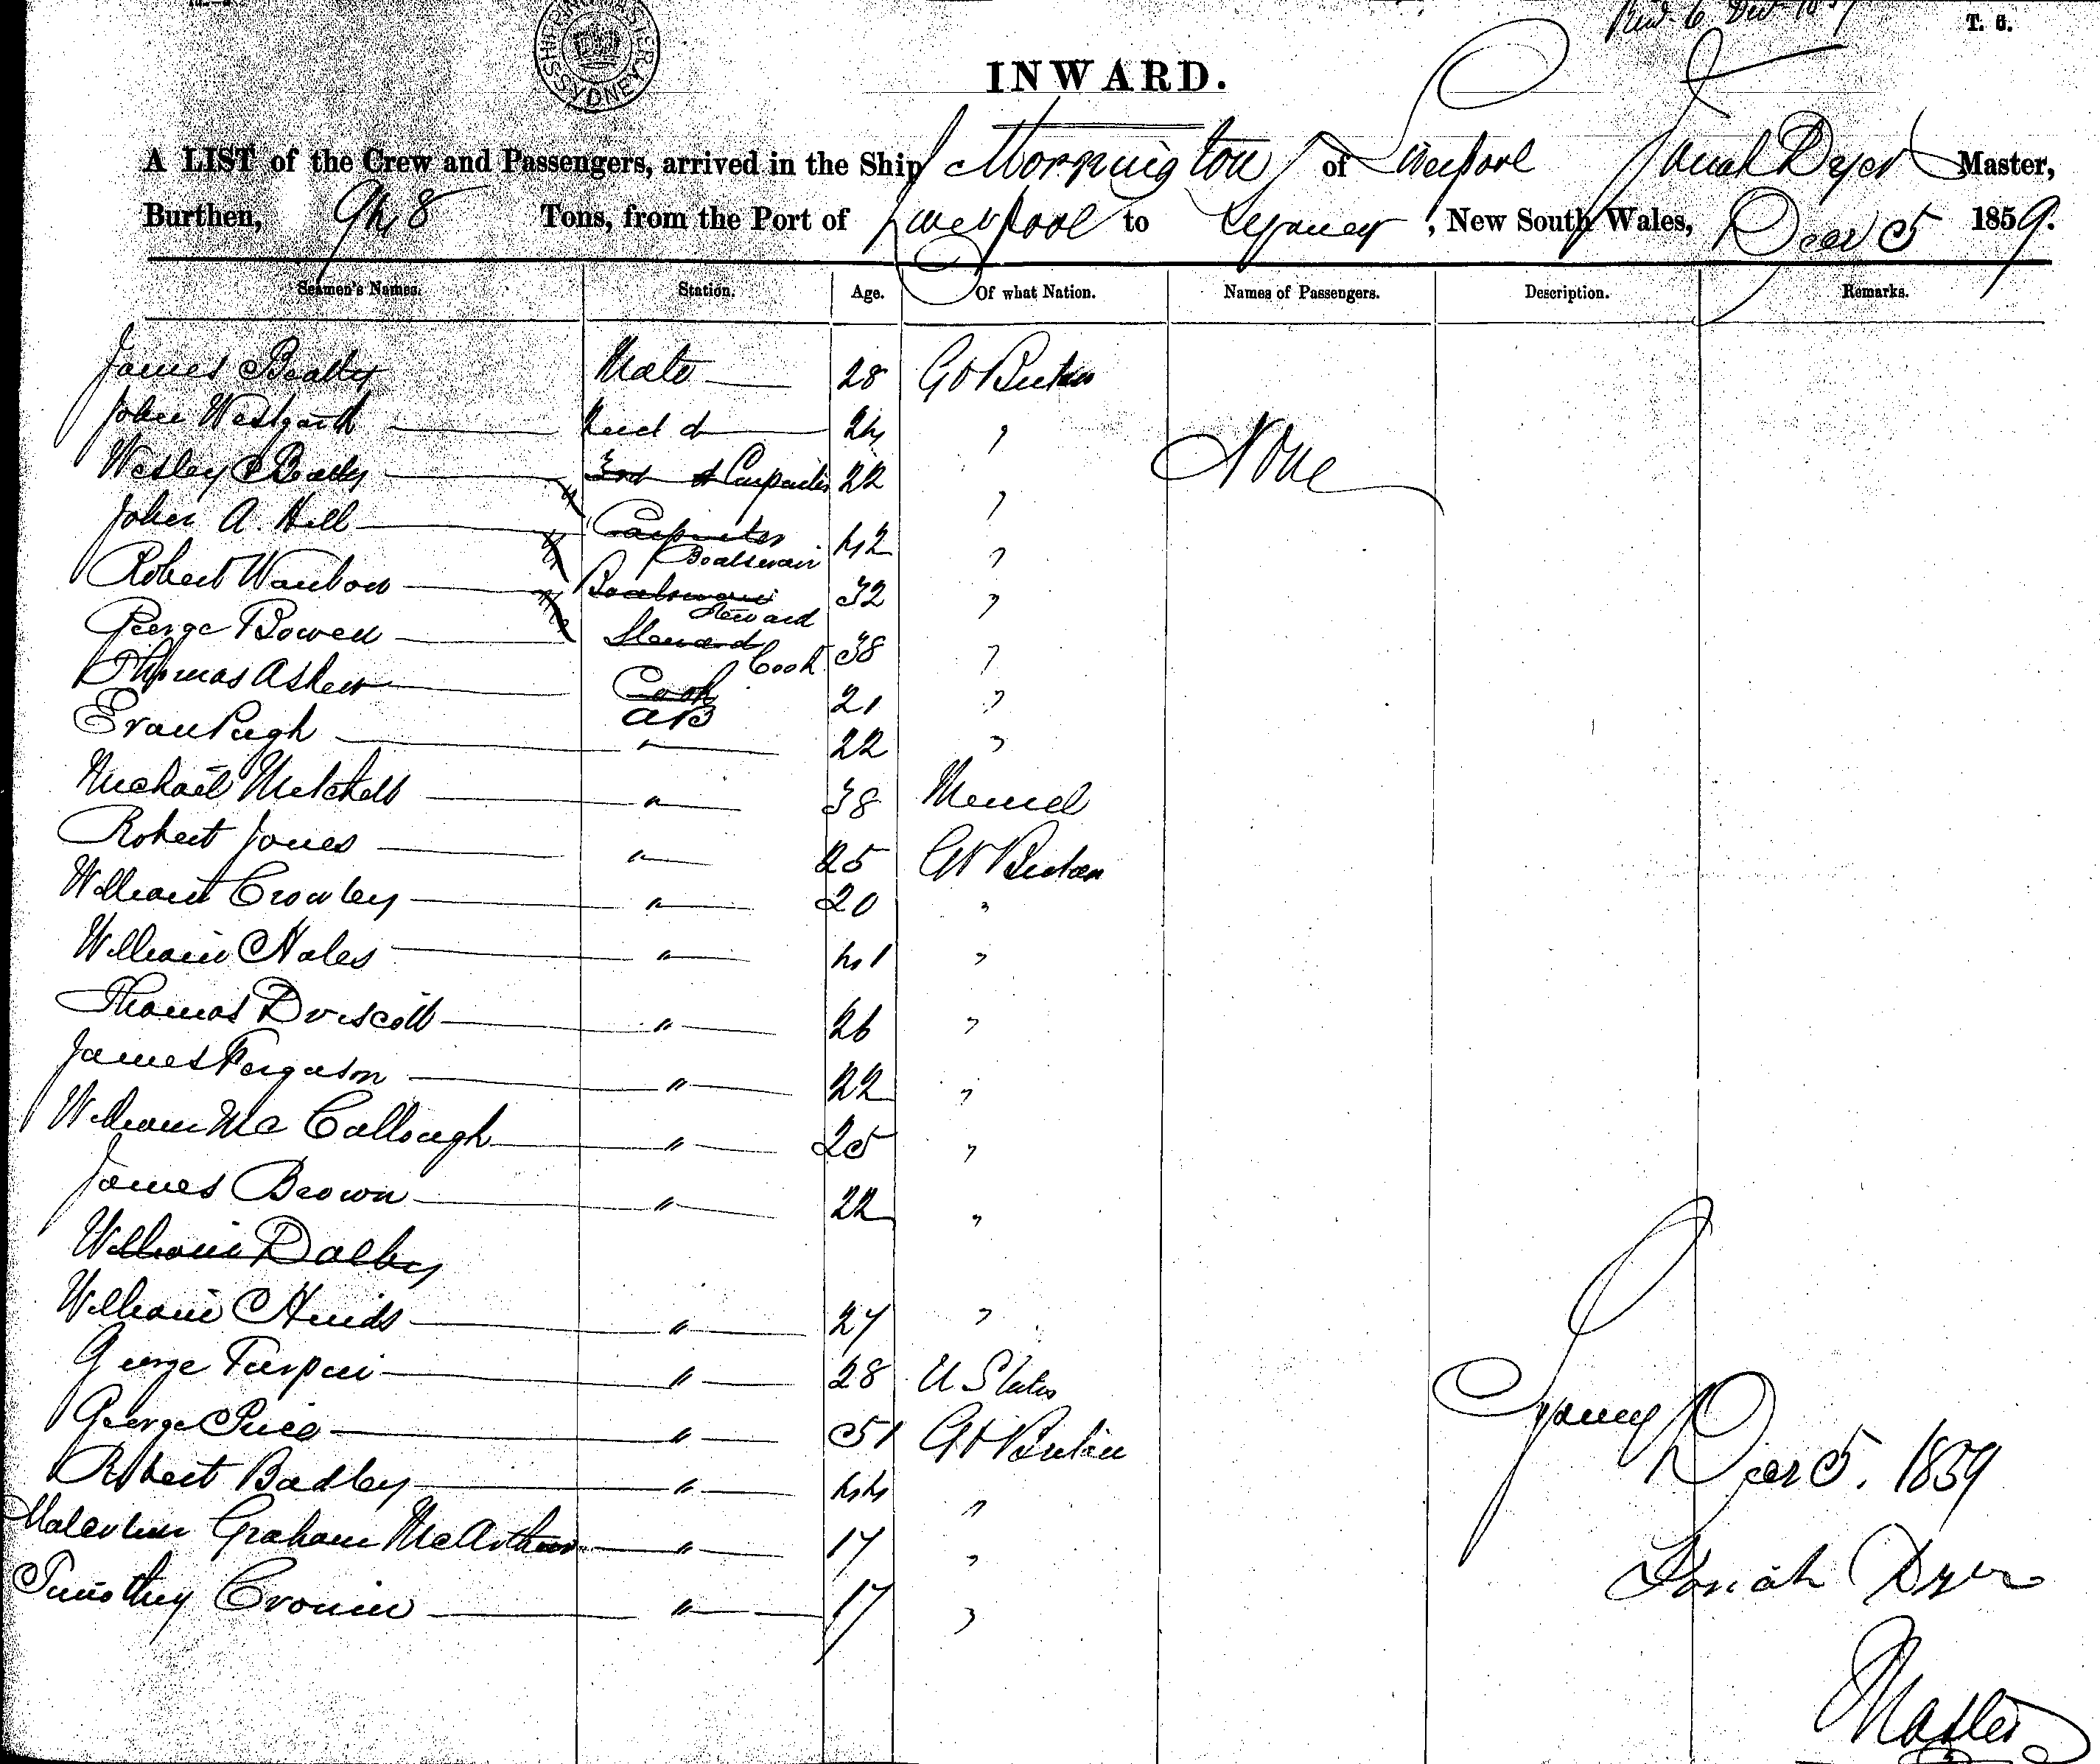 T. 6.
SHIPPING MASTER SYDNEY
INWARD.
A LIST of the Crew and Passengers, arrived in the Ship Mornington of Liverpool Josiah Dyer Master,
Burthen, 948 Tons, from the Port of Liverpool to Sydney, New South Wales, Decr 5 1859.
Seamen's Names. Station. Age. Of what Nation. Names of Passengers. Description. Remarks.
James Beatty Mate 28 Gt Britain
John Westgarth 24 "
None
Wesley Beatty 3rd & Carpenter 22 "
John A. Hill Carpenter Boatswain 42 "
Robert Boatswain Steward 32 "
George Bowen Steward Cook 38 "
Thomas Askew Cook AB 21 "
Evan Pugh " 22 "
Michael Mitchell " 38 Memel
Robert Jones " 25 Gt Britain
William Crowley " 20 "
William Hales " 41 "
Thomas Driscoll " 26 "
James Ferguson " 22 "
William McCullough " 25 "
James Brown " 22 "
William Dalby
William Hinds " 27 "
George Turpin " 28 U States
George Price " 51 Gt Britain
Robert Badley " 44 "
Malcolm Graham McArthur " 17 "
Timothy Cronin " 17 "
Sydney Decr 5. 1859
Josiah Dyer
Master